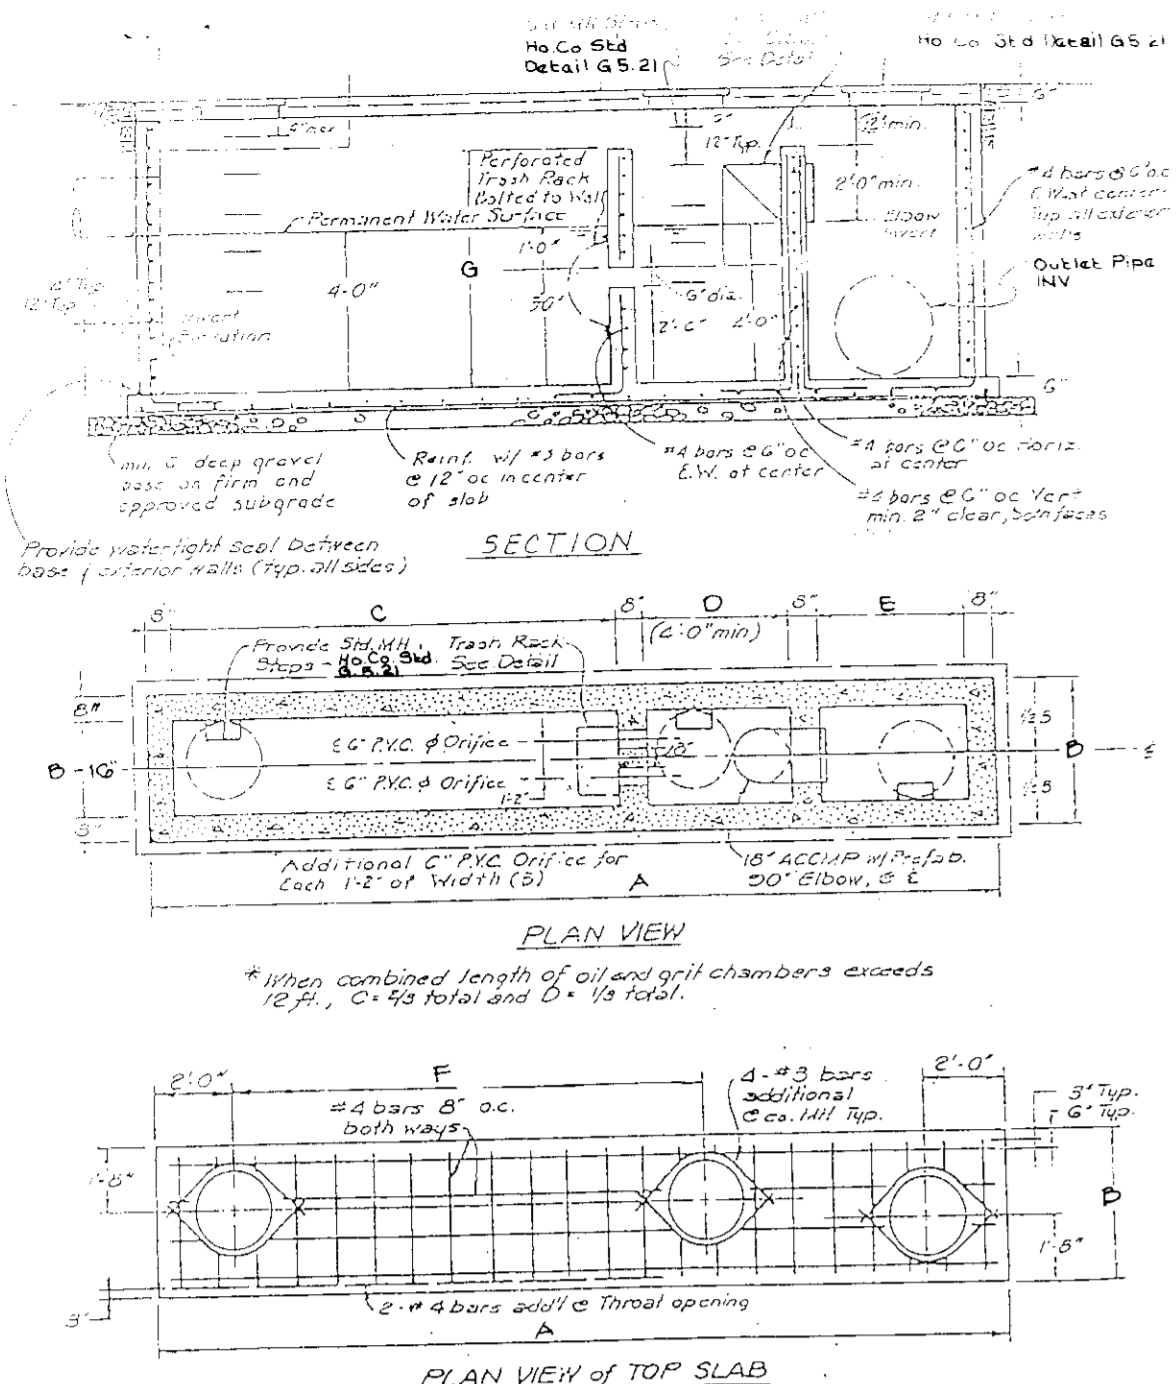 Ho.Co Std
Detail G5.21
See Detail
Ho Co Std Detail G5 21
6"
5"
12" Typ.
12" min.
2'-0" min.
Perforated
Trash Rack
Bolted to Wall
Permanent Water Surface
1'-0"
G
4'-0"
6" dia.
Elbow
Invert
#4 bars @ 6" o.c
E.W. at center
Typ. all exterior
walls
Outlet Pipe
INV
12" Typ
Invert
Elevation
6"
min. 6" deep gravel
base on firm and
approved subgrade
Reinf. w/ #3 bars
@ 12" oc in center
of slab
#4 bars @ 6" oc
E.W. at center
#4 bars @ 6" oc Horiz.
at center
#4 bars @ 6" oc Vert
min. 2" clear, both faces
Provide watertight seal between
base & exterior walls (typ. all sides)
SECTION
8" C 8" D 8" E 8"
(2'-0" min)
Provide Std. MH
Steps - Ho.Co.Std.
G.5.21
Trash Rack
See Detail
8"
B -16"
8"
₵ 6" P.V.C. ϕ Orifice
₵ 6" P.V.C. ϕ Orifice
1'-2"
18"
B
Additional 6" P.V.C. Orifice for
Each 1'-2" of Width (B)
18" ACCMP w/ Prefab.
90° Elbow, @ ₵
A
PLAN VIEW
* When combined length of oil and grit chambers exceeds
12 ft., C = 2/3 total and D = 1/3 total.
2'-0" F 2'-0"
#4 bars 8" o.c.
both ways
4-#3 bars
additional
@ ea. MH Typ.
3" Typ.
6" Typ.
1'-8"
B
1'-8"
3"
2-#4 bars add'l @ Throat opening
A
PLAN VIEW of TOP SLAB